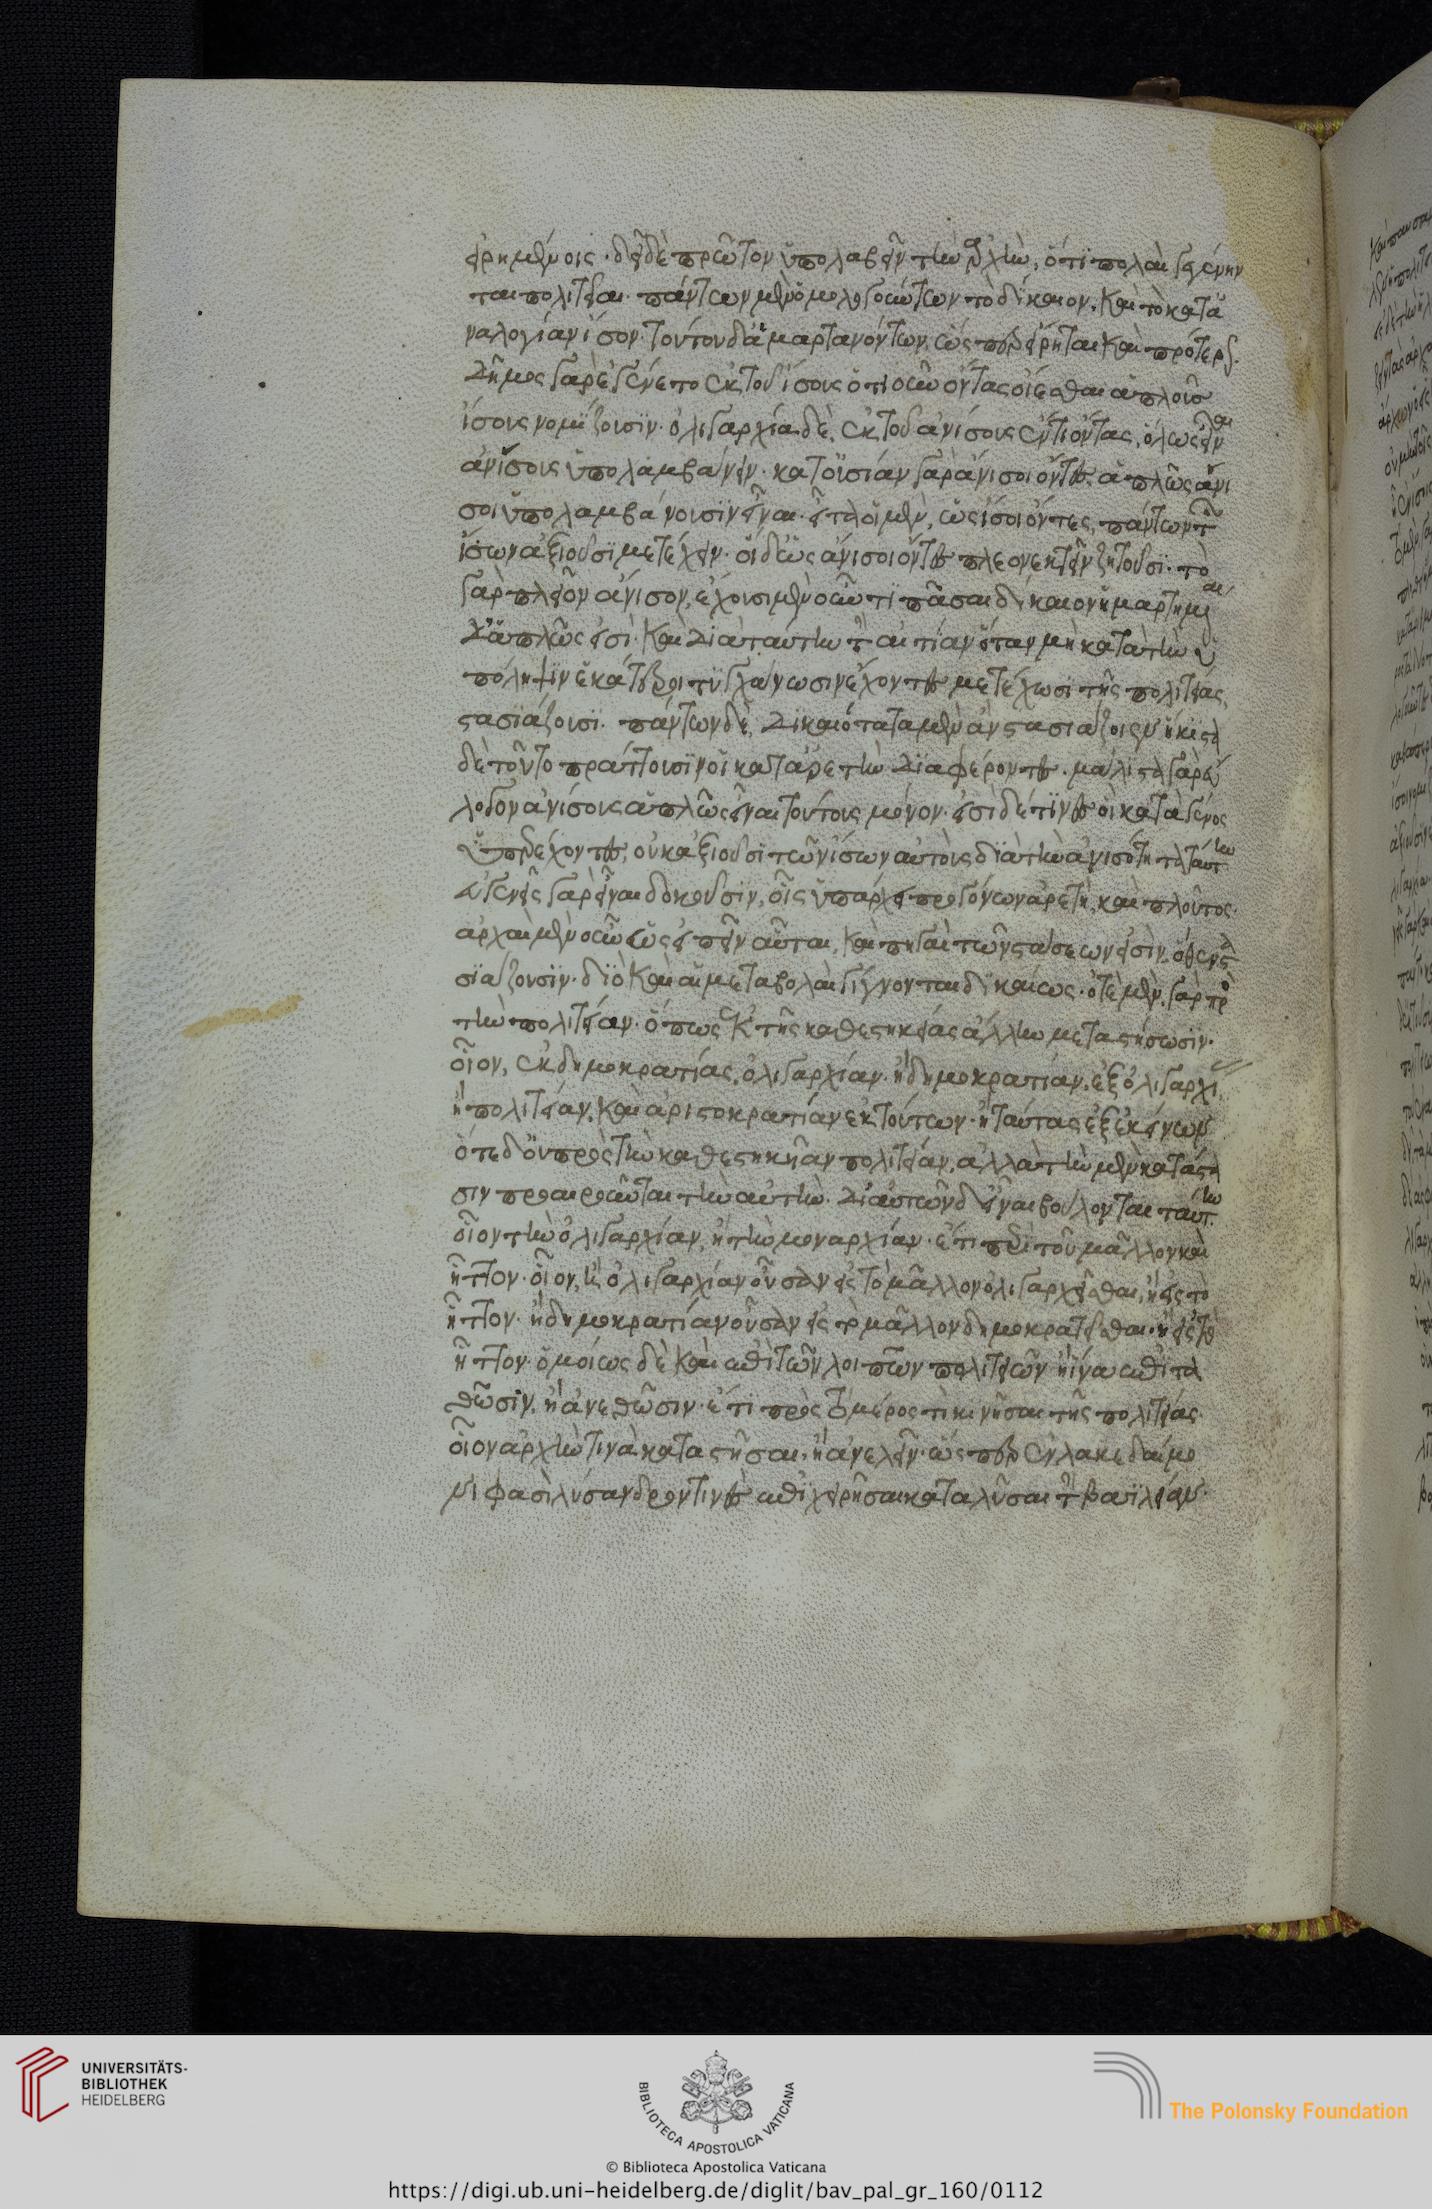 εἰρημένοις· δεῖ δὲ πρῶτον ὑπολαβεῖν τὴν ἀρχὴν, ὅτι πολλαὶ γεγένην
ται πολιτεῖαι· πάντων μὲν ὁμολογούντων τὸ δίκαιον, καὶ τὸ κατ' ἀ
ναλογίαν ἴσον· τούτου δ' ἁμαρτανόντων, ὥσπερ εἴρηται καὶ πρότερον·
δῆμος γὰρ ἐγένετο ἐκ τοῦ ἴσους ὁτιοῦν ὄντας οἴεσθαι ἁπλῶς
ἴσους νομίζουσιν· ὀλιγαρχία δὲ, ἐκ τοῦ ἀνίσους ἕν τι ὄντας, ὅλως εἶναι
ἀνίσους ὑπολαμβάνειν· κατ' οὐσίαν γὰρ ἄνισοι ὄντες, ἁπλῶς ἄνι
σοι ὑπολαμβάνουσιν εἶναι· εἶτα οἱ μὲν, ὡς ἴσοι ὄντες, πάντων τῶν
ἴσων ἀξιοῦσι μετέχειν· οἱ δ' ὡς ἄνισοι ὄντες πλεονεκτεῖν ζητοῦσι· τὸ
γὰρ πλεῖον ἄνισον, ἔχουσι μὲν οὖν τι πᾶσαι δίκαιον ἡμαρτημέναι
δ' ἁπλῶς εἰσὶ· καὶ διὰ ταύτην τὴν αἰτίαν ὅταν μὴ κατὰ τὴν ὑ
πόληψιν ἑκάτεροι τυγχάνωσιν ἔχοντες μετέχωσι τῆς πολιτείας,
στασιάζουσι· πάντων δὲ, δικαιότατα μὲν ἂν στασιάζοιεν ἥκιστα
δὲ τοῦτο πράττουσιν οἱ κατ' ἀρετὴν διαφέροντες· μάλιστα γὰρ εὔ
λογον ἀνίσους ἁπλῶς εἶναι τούτους μόνον· εἰσὶ δέ τινες οἳ κατὰ γένος
ὑπερέχοντες, οὐκ ἀξιοῦσι τῶν ἴσων αὐτοὺς διὰ τὴν ἀνισότητα ταύτην
εὐγενεῖς γὰρ εἶναι δοκοῦσιν, οἷς ὑπάρχει προγόνων ἀρετὴ, καὶ πλοῦτος·
ἀρχαὶ μὲν οὖν ὡς εἰπεῖν αὗται, καὶ πηγαὶ τῶν στάσεων εἰσὶν, ὅθεν στα
σιάζουσιν· διὸ καὶ αἱ μεταβολαὶ γίγνονται δικαίως· ὁτὲ μὲν, γὰρ πρὸς
τὴν πολιτείαν· ὅπως ἐκ τῆς καθεστηκείας ἄλλην μεταστήσωσιν·
οἷον, ἐκ δημοκρατίας, ὀλιγαρχίαν· ἢ δημοκρατίαν, ἐξ ὀλιγαρχι
ἢ πολιτείαν, καὶ ἀριστοκρατίαν ἐκ τούτων· ἢ ταύτας ἐξ ἐκείνων
ὁτὲ δ' οὐ πρὸς τὴν καθεστηκῆαν πολιτείαν, ἀλλὰ τὴν μὲν κατάστα
σιν προαιροῦνται τὴν αὐτὴν· δι' αὑτῶν δ' εἶναι βούλονται ταύτην
οἷον τὴν ὀλιγαρχίαν, ἢ τὴν μοναρχίαν· ἔτι περὶ τοῦ μᾶλλον καὶ
ἧττον· οἷον, ἢ ὀλιγαρχίαν οὖσαν εἰς τὸ μᾶλλον ὀλιγαρχεῖσθαι, ἢ εἰς τὸ
ἧττον· ἢ δημοκρατίαν οὖσαν εἰς τὸ μᾶλλον δημοκρατεῖσθαι· ἢ εἰς τὸ
ἧττον· ὁμοίως δὲ καὶ ἐπὶ τῶν λοιπῶν πολιτειῶν ἢ ἵνα ἐπιτα
θῶσιν, ἢ ἀνεθῶσιν· ἔτι πρὸς τὸ μέρος τὶ κινῆσαι τῆς πολιτείας
οἷον ἀρχὴν τινὰ καταστῆσαι, ἢ ἀνελεῖν· ὥσπερ ἐν λακεδαίμο
νι φασὶ λύσανδρον τινὲς ἐπιχειρῆσαι καταλῦσαι τὴν βασιλείαν·
UNIVERSITÄTS-
BIBLIOTHEK
HEIDELBERG
BIBLIOTECA APOSTOLICA VATICANA
The Polonsky Foundation
© Biblioteca Apostolica Vaticana
https://digi.ub.uni-heidelberg.de/diglit/bav_pal_gr_160/0112